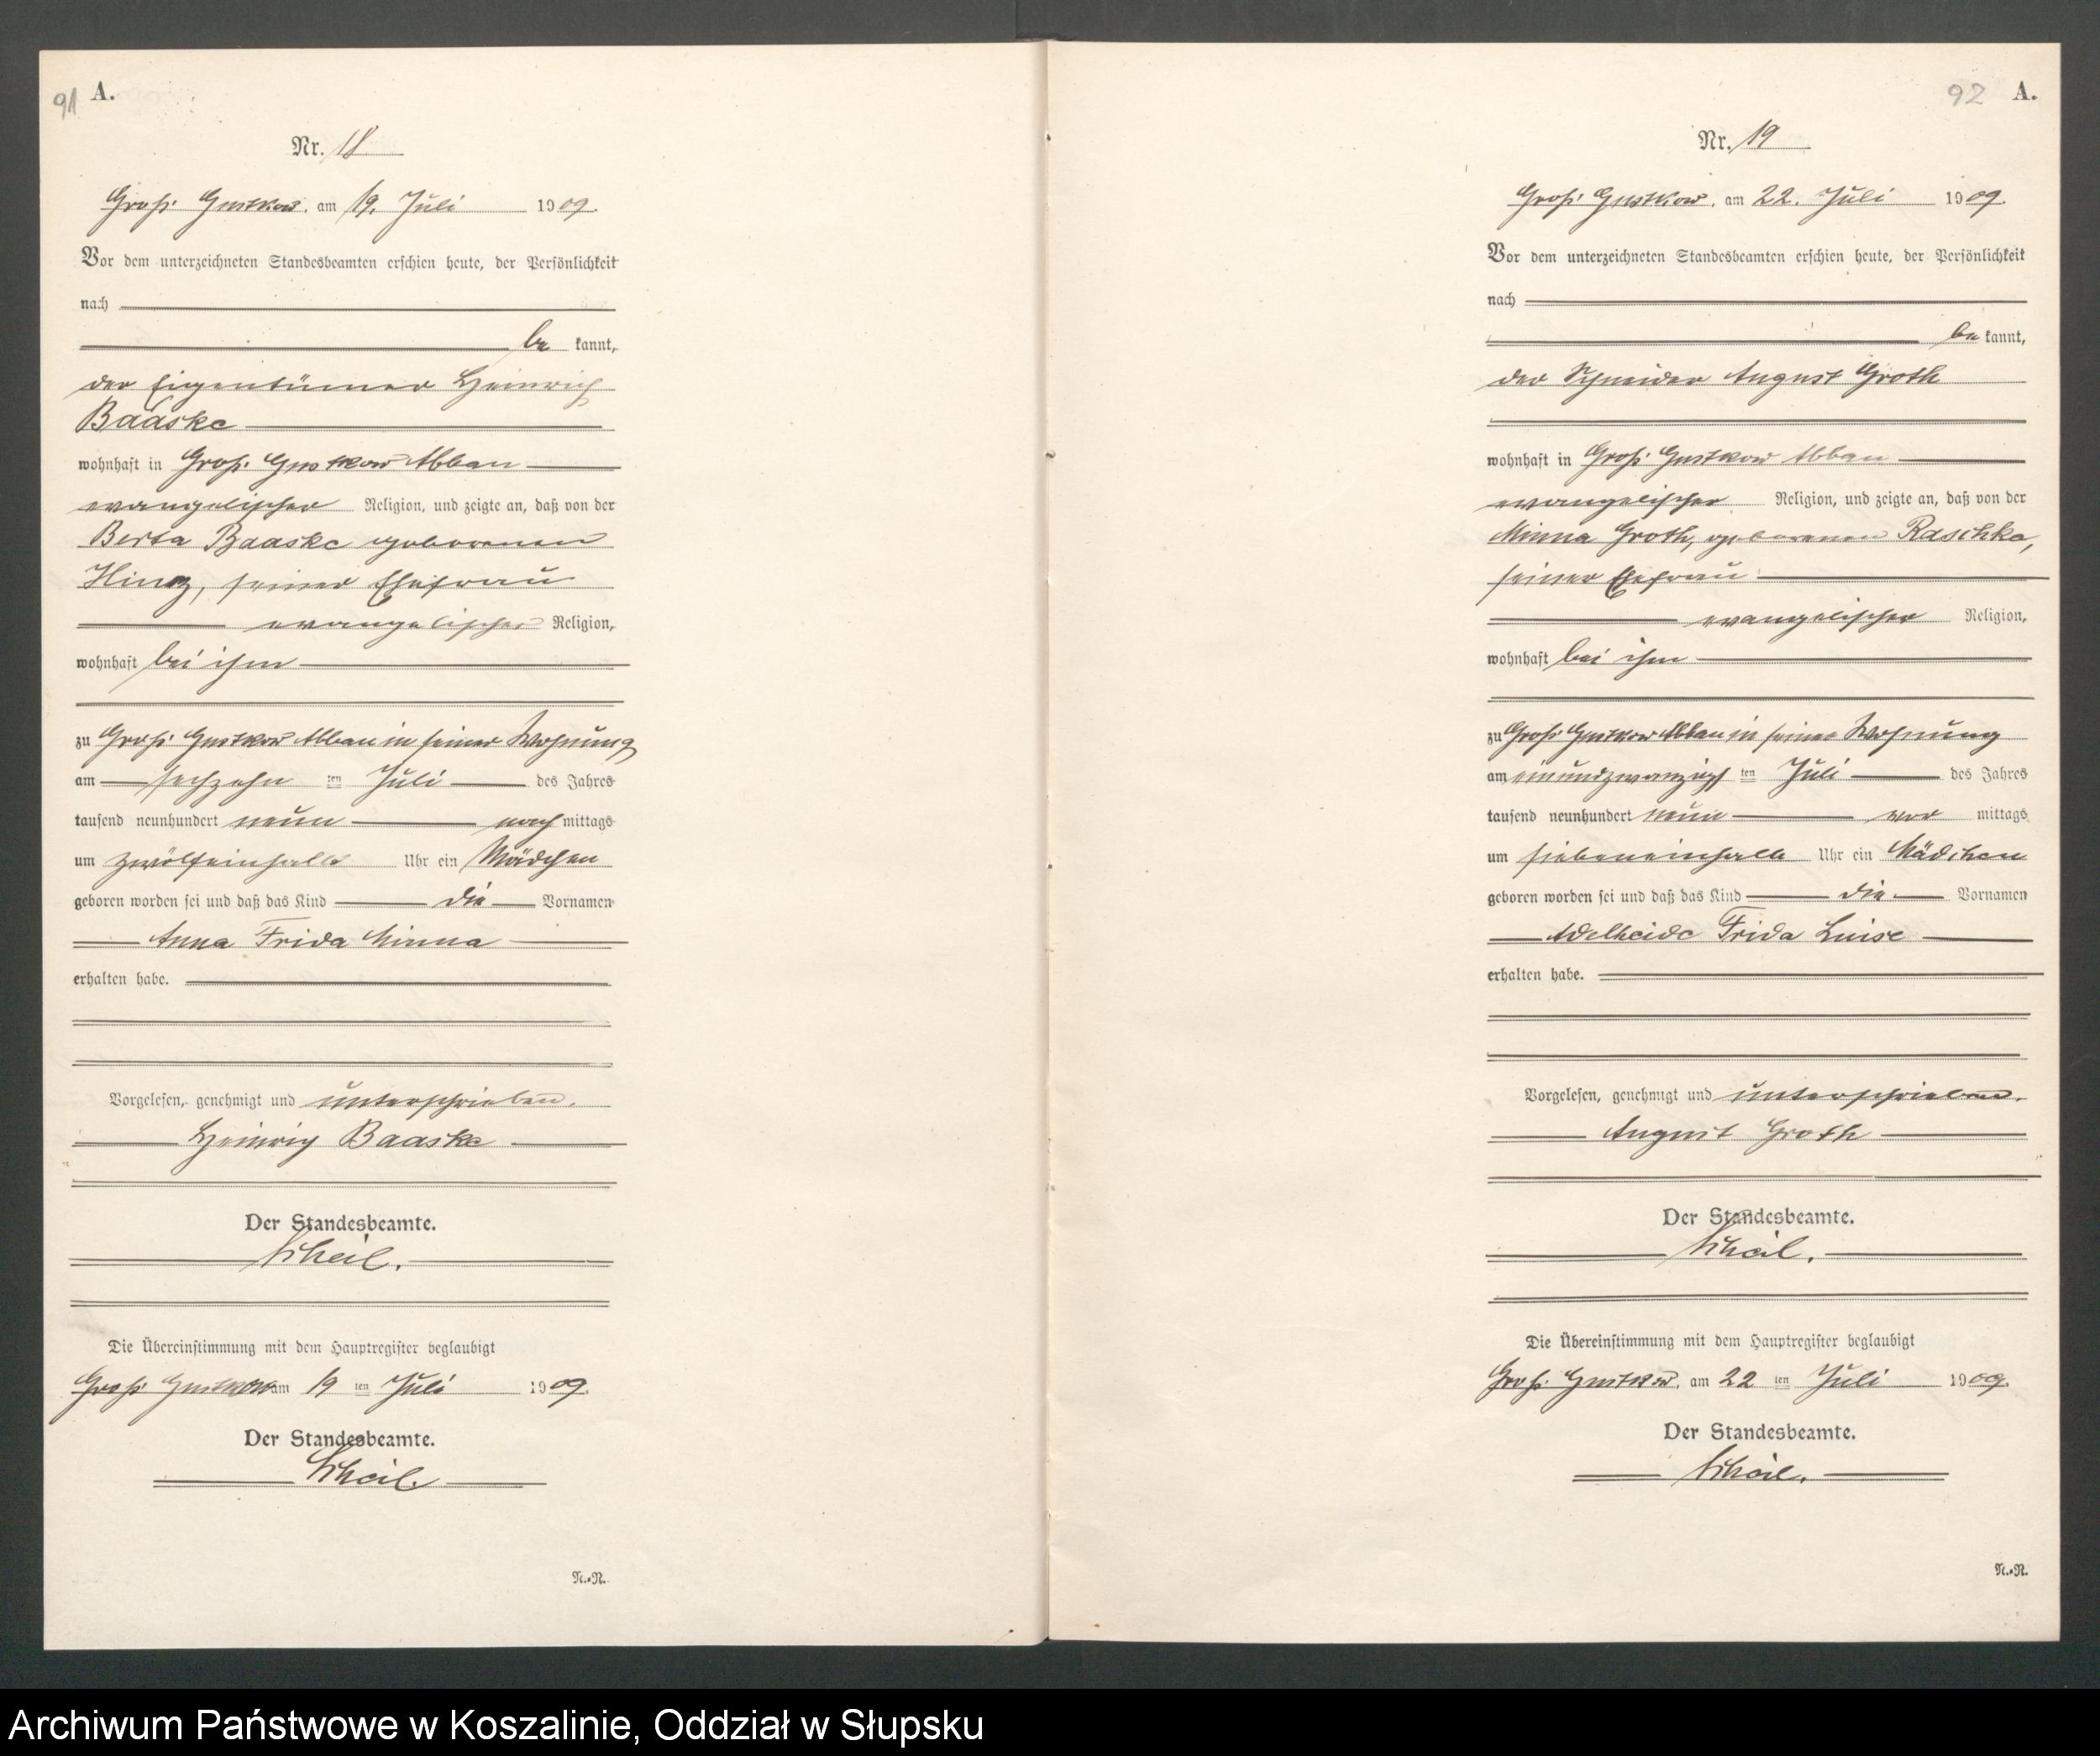 91 A.
Nr. 18
Groß Gustkow, am 19. Juli 1909.
Vor dem unterzeichneten Standesbeamten erschien heute, der Persönlichkeit
nach
be kannt,
der Eigentümer Heinrich
Baaske
wohnhaft in Groß Gustkow Abbau
evangelischer Religion, und zeigte an, daß von der
Berta Baaske geborenen
Hinz, seiner Ehefrau
evangelischer Religion,
wohnhaft bei ihm
zu Groß Gustkow Abbau in seiner Wohnung
am sechzehn ten Juli des Jahres
tausend neunhundert neun nach mittags
um zwölfeinhalb Uhr ein Mädchen
geboren worden sei und daß das Kind die Vornamen
Anna Frida Minna
erhalten habe.
Vorgelesen, genehmigt und unterschrieben.
Heinrich Baaske
Der Standesbeamte.
Scheil.
Die Übereinstimmung mit dem Hauptregister beglaubigt
Groß Gustkow am 19 ten Juli 1909.
Der Standesbeamte.
Scheil.
N.=R.
92 A.
Nr. 19
Groß Gustkow, am 22. Juli 1909.
Vor dem unterzeichneten Standesbeamten erschien heute, der Persönlichkeit
nach
be kannt,
der Schneider August Groth
wohnhaft in Groß Gustkow Abbau
evangelischer Religion, und zeigte an, daß von der
Minna Groth, geborenen Raschke,
seiner Ehefrau
evangelischer Religion,
wohnhaft bei ihm
zu Groß Gustkow Abbau in seiner Wohnung
am einundzwanzigs ten Juli des Jahres
tausend neunhundert neun vor mittags
um siebeneinhalb Uhr ein Mädchen
geboren worden sei und daß das Kind die Vornamen
Adelheide Frida Luise
erhalten habe.
Vorgelesen, genehmigt und unterschrieben.
August Groth
Der Standesbeamte.
Scheil.
Die Übereinstimmung mit dem Hauptregister beglaubigt
Groß Gustkow, am 22 ten Juli 1909.
Der Standesbeamte.
Scheil.
N.=R.
Archiwum Państwowe w Koszalinie, Oddział w Słupsku